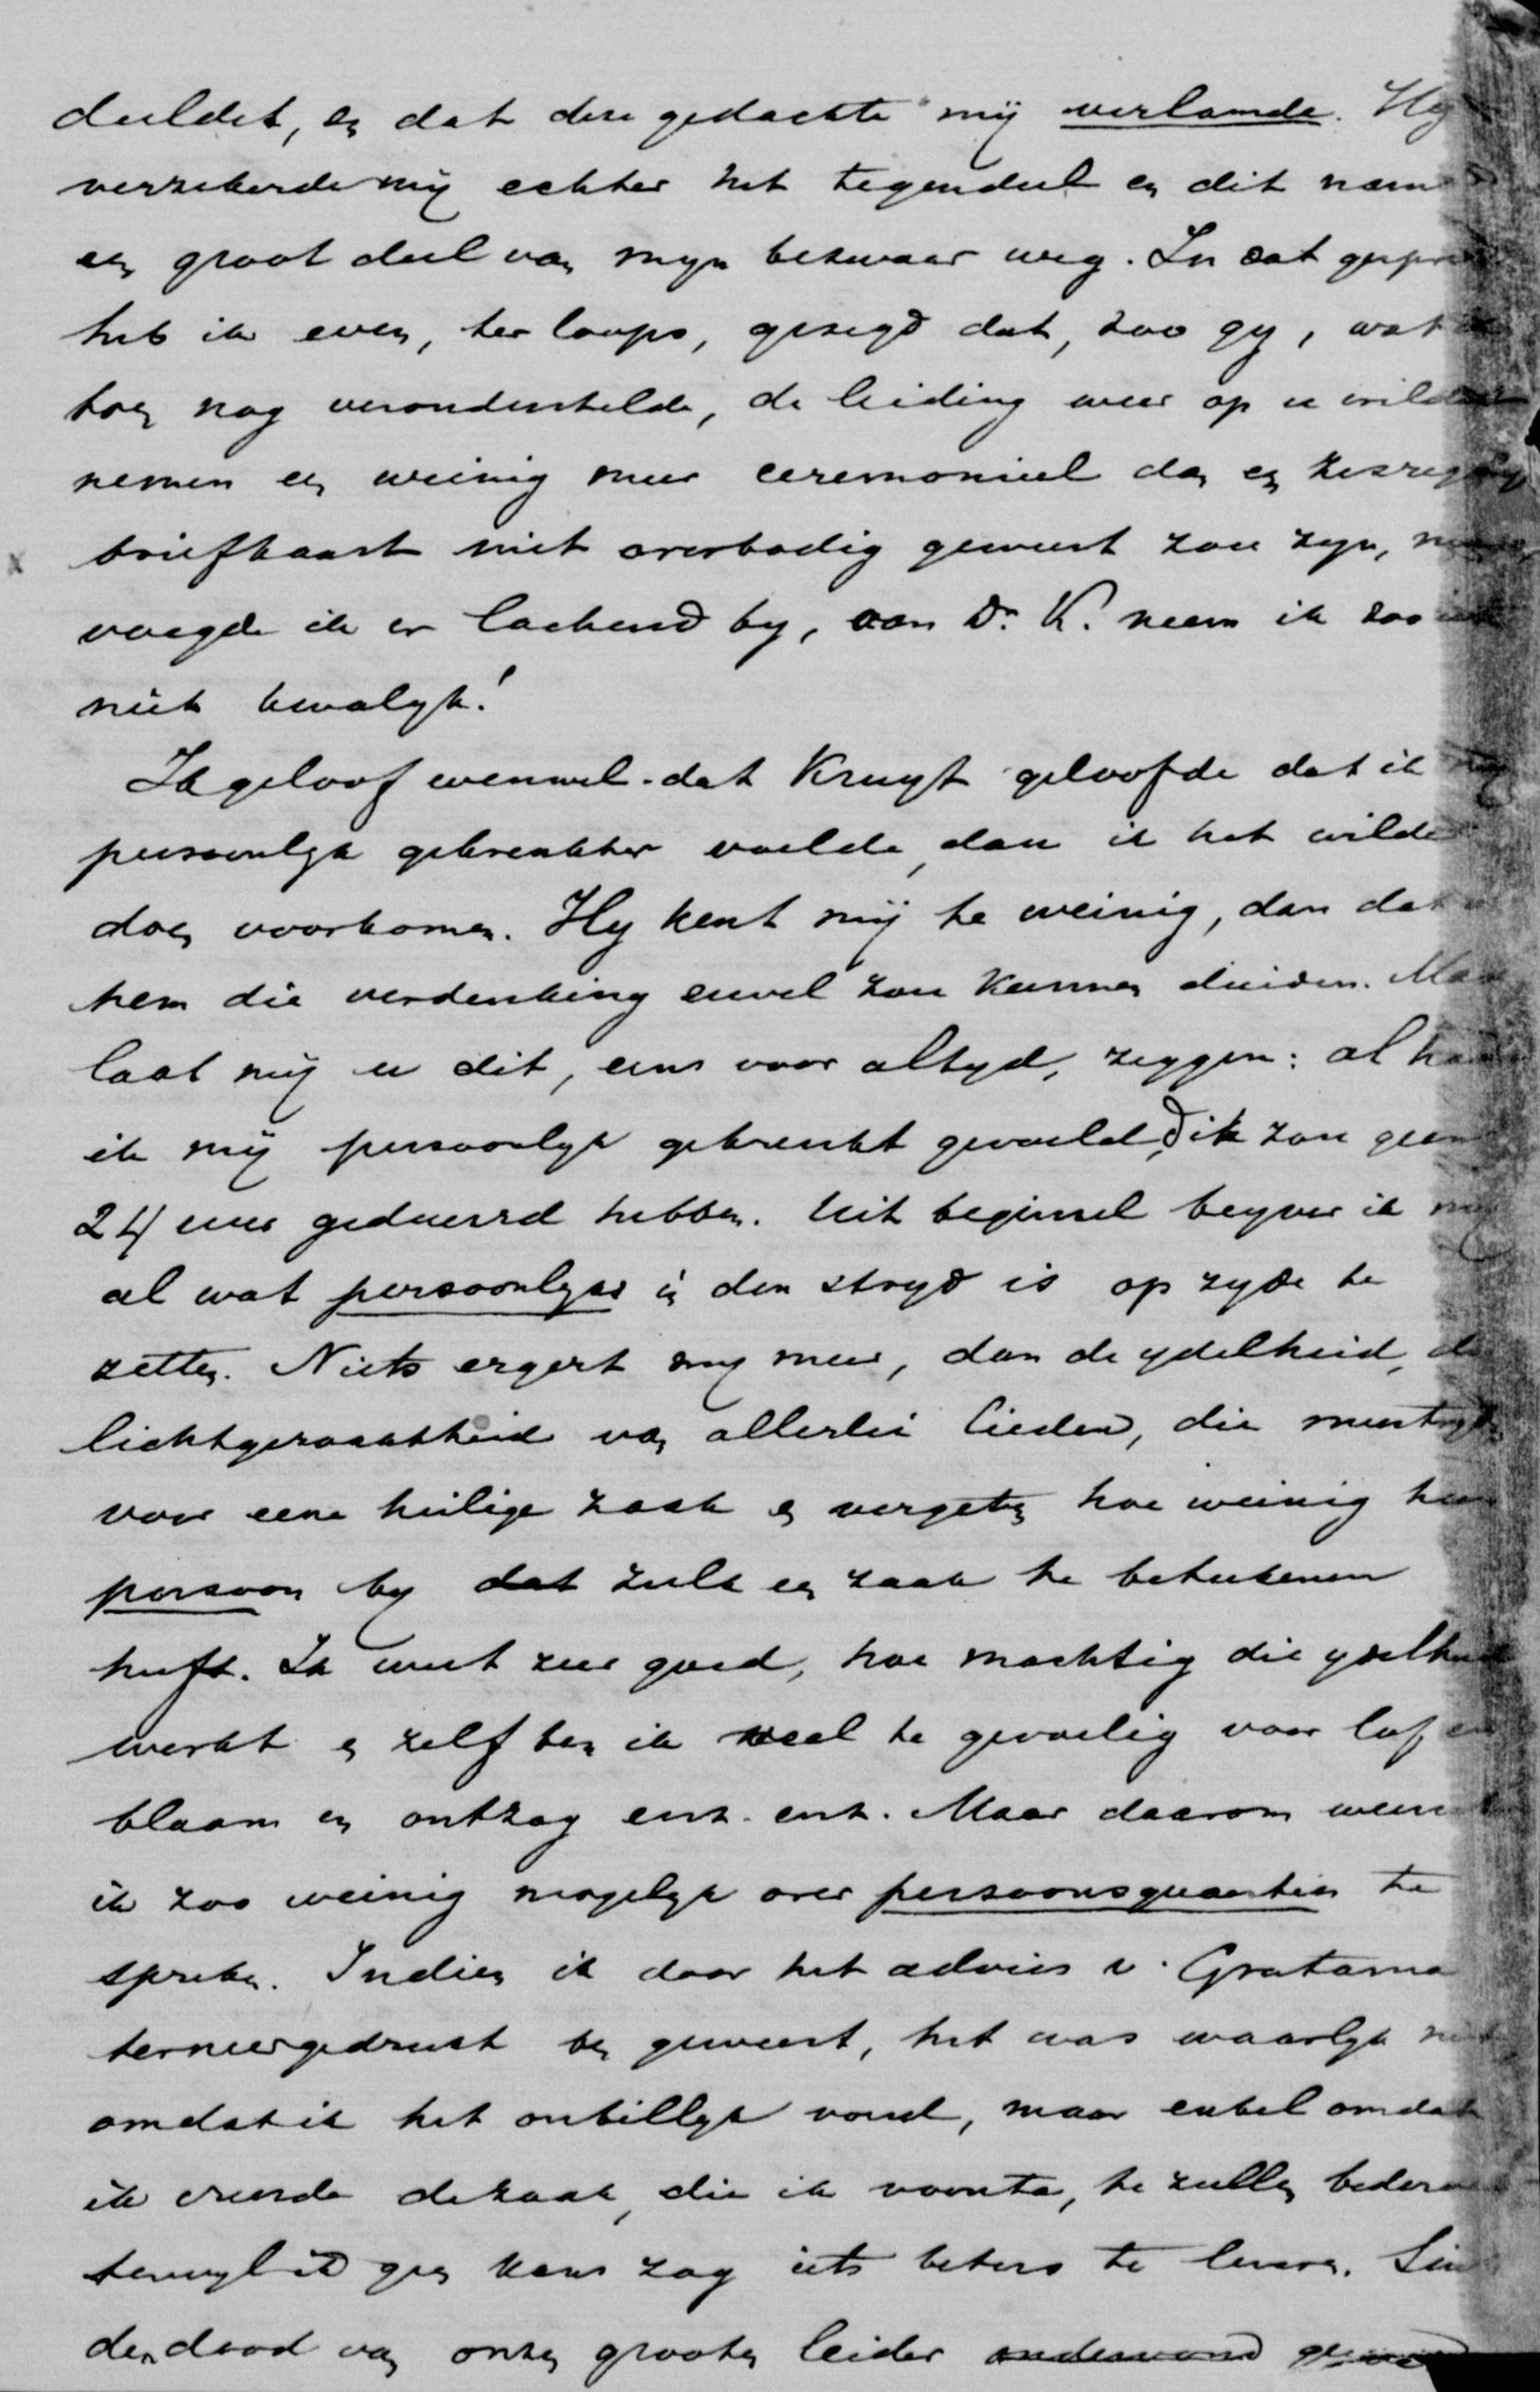 duldet, en dat deze gedachte mij verlamde. Hij
verzekerde mij echter het tegendeel en dit nam
een groot deel van mijn bezwaar weg. In dat
heb ik even, ter loops, gezegd dat, zoo gij, wat
toen nog veronderstelde, de leiding weer op u
nemen een weinig meer ceremonieel dan een
briefkaart niet overbodig geweest zou zijn,
voegde ik er lachend bij, van Dr. K. neem ik zoo
niet kwalijk!
Ik geloof evenwel dat Kruyt geloofde dat ik
persoonlijk gekrenkter voelde, dan ik het wilde
doen voorkomen. Hij kent mij te weinig, dan dat
hem die verdenking euvel zou kunnen duiden.
laat mij u dit, eens voor altijd, zeggen: al
ik mij persoonlijk gekrenkt gevoeld, ik zou geen
24 uur geduurd hebben. Uit beginsel beijver ik
al wat persoonlijks in den strijd is op zijde te
zetten. Niets ergert mij meer, dan de ijdelheid,
lichtgeraaktheid van allerlei lieden, die
voor eene heilige zaak en vergeten hoe weinig
persoon bij dat zulk een zaak te beteekenen
heeft. Ik weet zeer goed, hoe machtig die
werkt en zelf ben ik veel te gevoelig voor lof
blaam en ontzag enz. enz. Maar daarom
ik zoo weinig mogelijk over persoonsquaesties te
spreken. Indien ik door het advies v. Gratama
terneergedrukt ben geweest, het was waarlijk
omdat ik het onbillijk vond, maar enkel omdat
ik vreesde de zaak, die ik voorsta, te zullen
terwijl ik geen kans zag iets beters te leveren.
den dood van onzen grooten leider